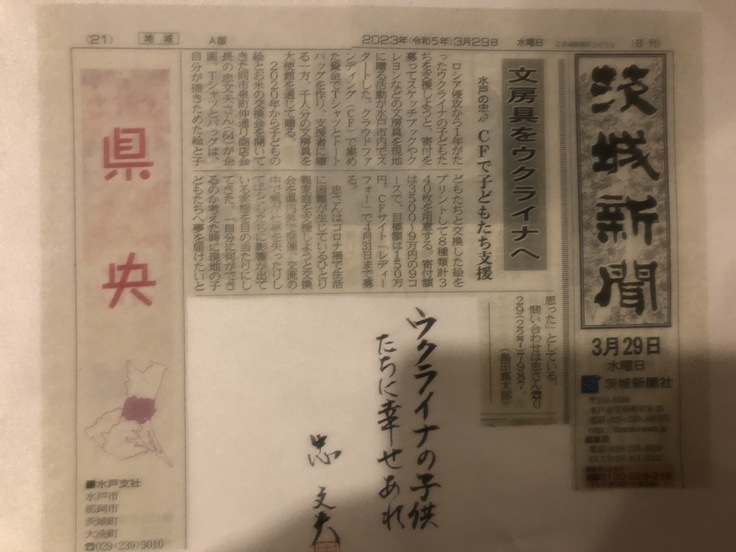 (21)
地域
A版
2023年(令和5年)3月29日
水曜日
(日刊)
茨城新聞
3月29日
水曜日
茨城新聞社
文房具をウクライナへ
水戸の忠さん CFで子どもたち支援
ロシア侵攻から1年がた
ったウクライナの子どもた
ちを支援しようと、寄付を
募ってスケッチブックやク
レヨンなどの文房具を現地
に贈る活動が水戸市内でス
タートした。クラウドファ
ンディング(CF)で集め
た資金でTシャツとトート
バッグを作り、支援者に贈
る一方、千人分の文房具を
大使館を通じて贈る。
2020年から子どもの
絵とお米の交換会を開いて
きた同市泉町仲通り商店会
長の忠文夫さん(64)が企
画。Tシャツとバッグは、
自分が描きためた絵と子
どもたちと交換した絵を
プリントして8種類計3
40枚を用意する。寄付額
は3500〜9万円の9コ
ースで、目標額は150万
円。CFサイト「レディー
フォー」で4月31日まで募
る。
忠さんはコロナ禍で生活
に困難が生じているひとり
親家庭を支援しようと交換
会を県内外で開催。交流の
中で親が仕事を失ったりし
て子どもたちに影響が出て
いる実態を目の当たりにし
てきた。「自分に何ができ
るのか考えた時に現地の子
どもたちへ夢を届けたいと
思った」としている。
問い合わせは忠さん☎0
29(227)7987。
県央
ウクライナの子供
たちに幸せあれ
忠 文夫
■水戸支社
水戸市
那珂市
茨城町
大洗町
☎029(239)3010